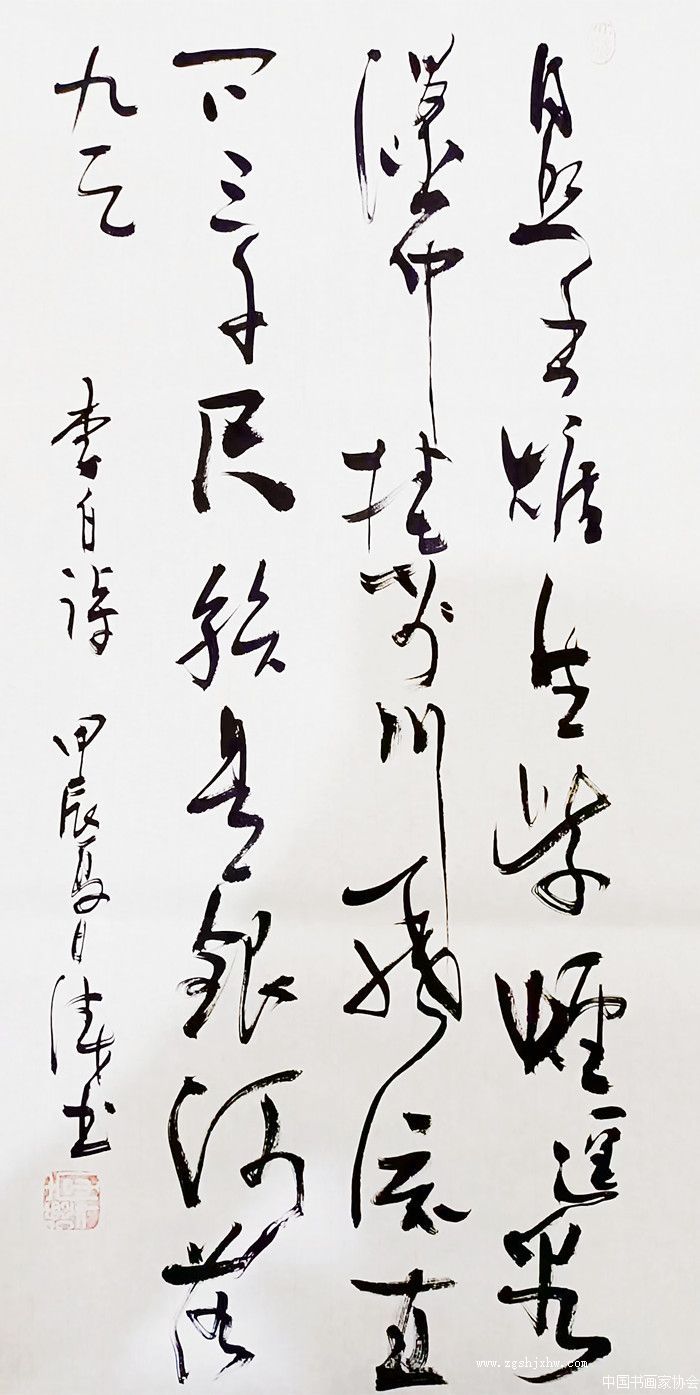 日照香炉生紫煙遥看
瀑布挂前川飛流直
下三千尺疑是銀河落
九天
李白詩 甲辰夏日 书
www.zgshjxhw.com
中国书画家协会